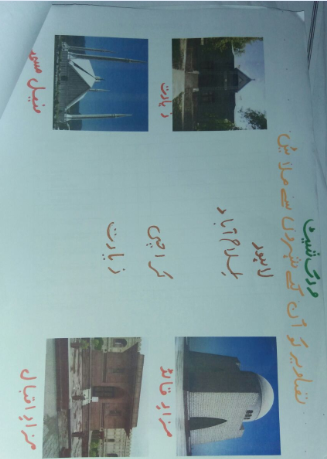 ورک شیٹ
تصاویر کو ان کے شہروں سے ملائیں
لاہور
اسلام آباد
مزارِ قائد
کراچی
زیارت
زیارت
مزارِ اقبال
فیصل مسجد